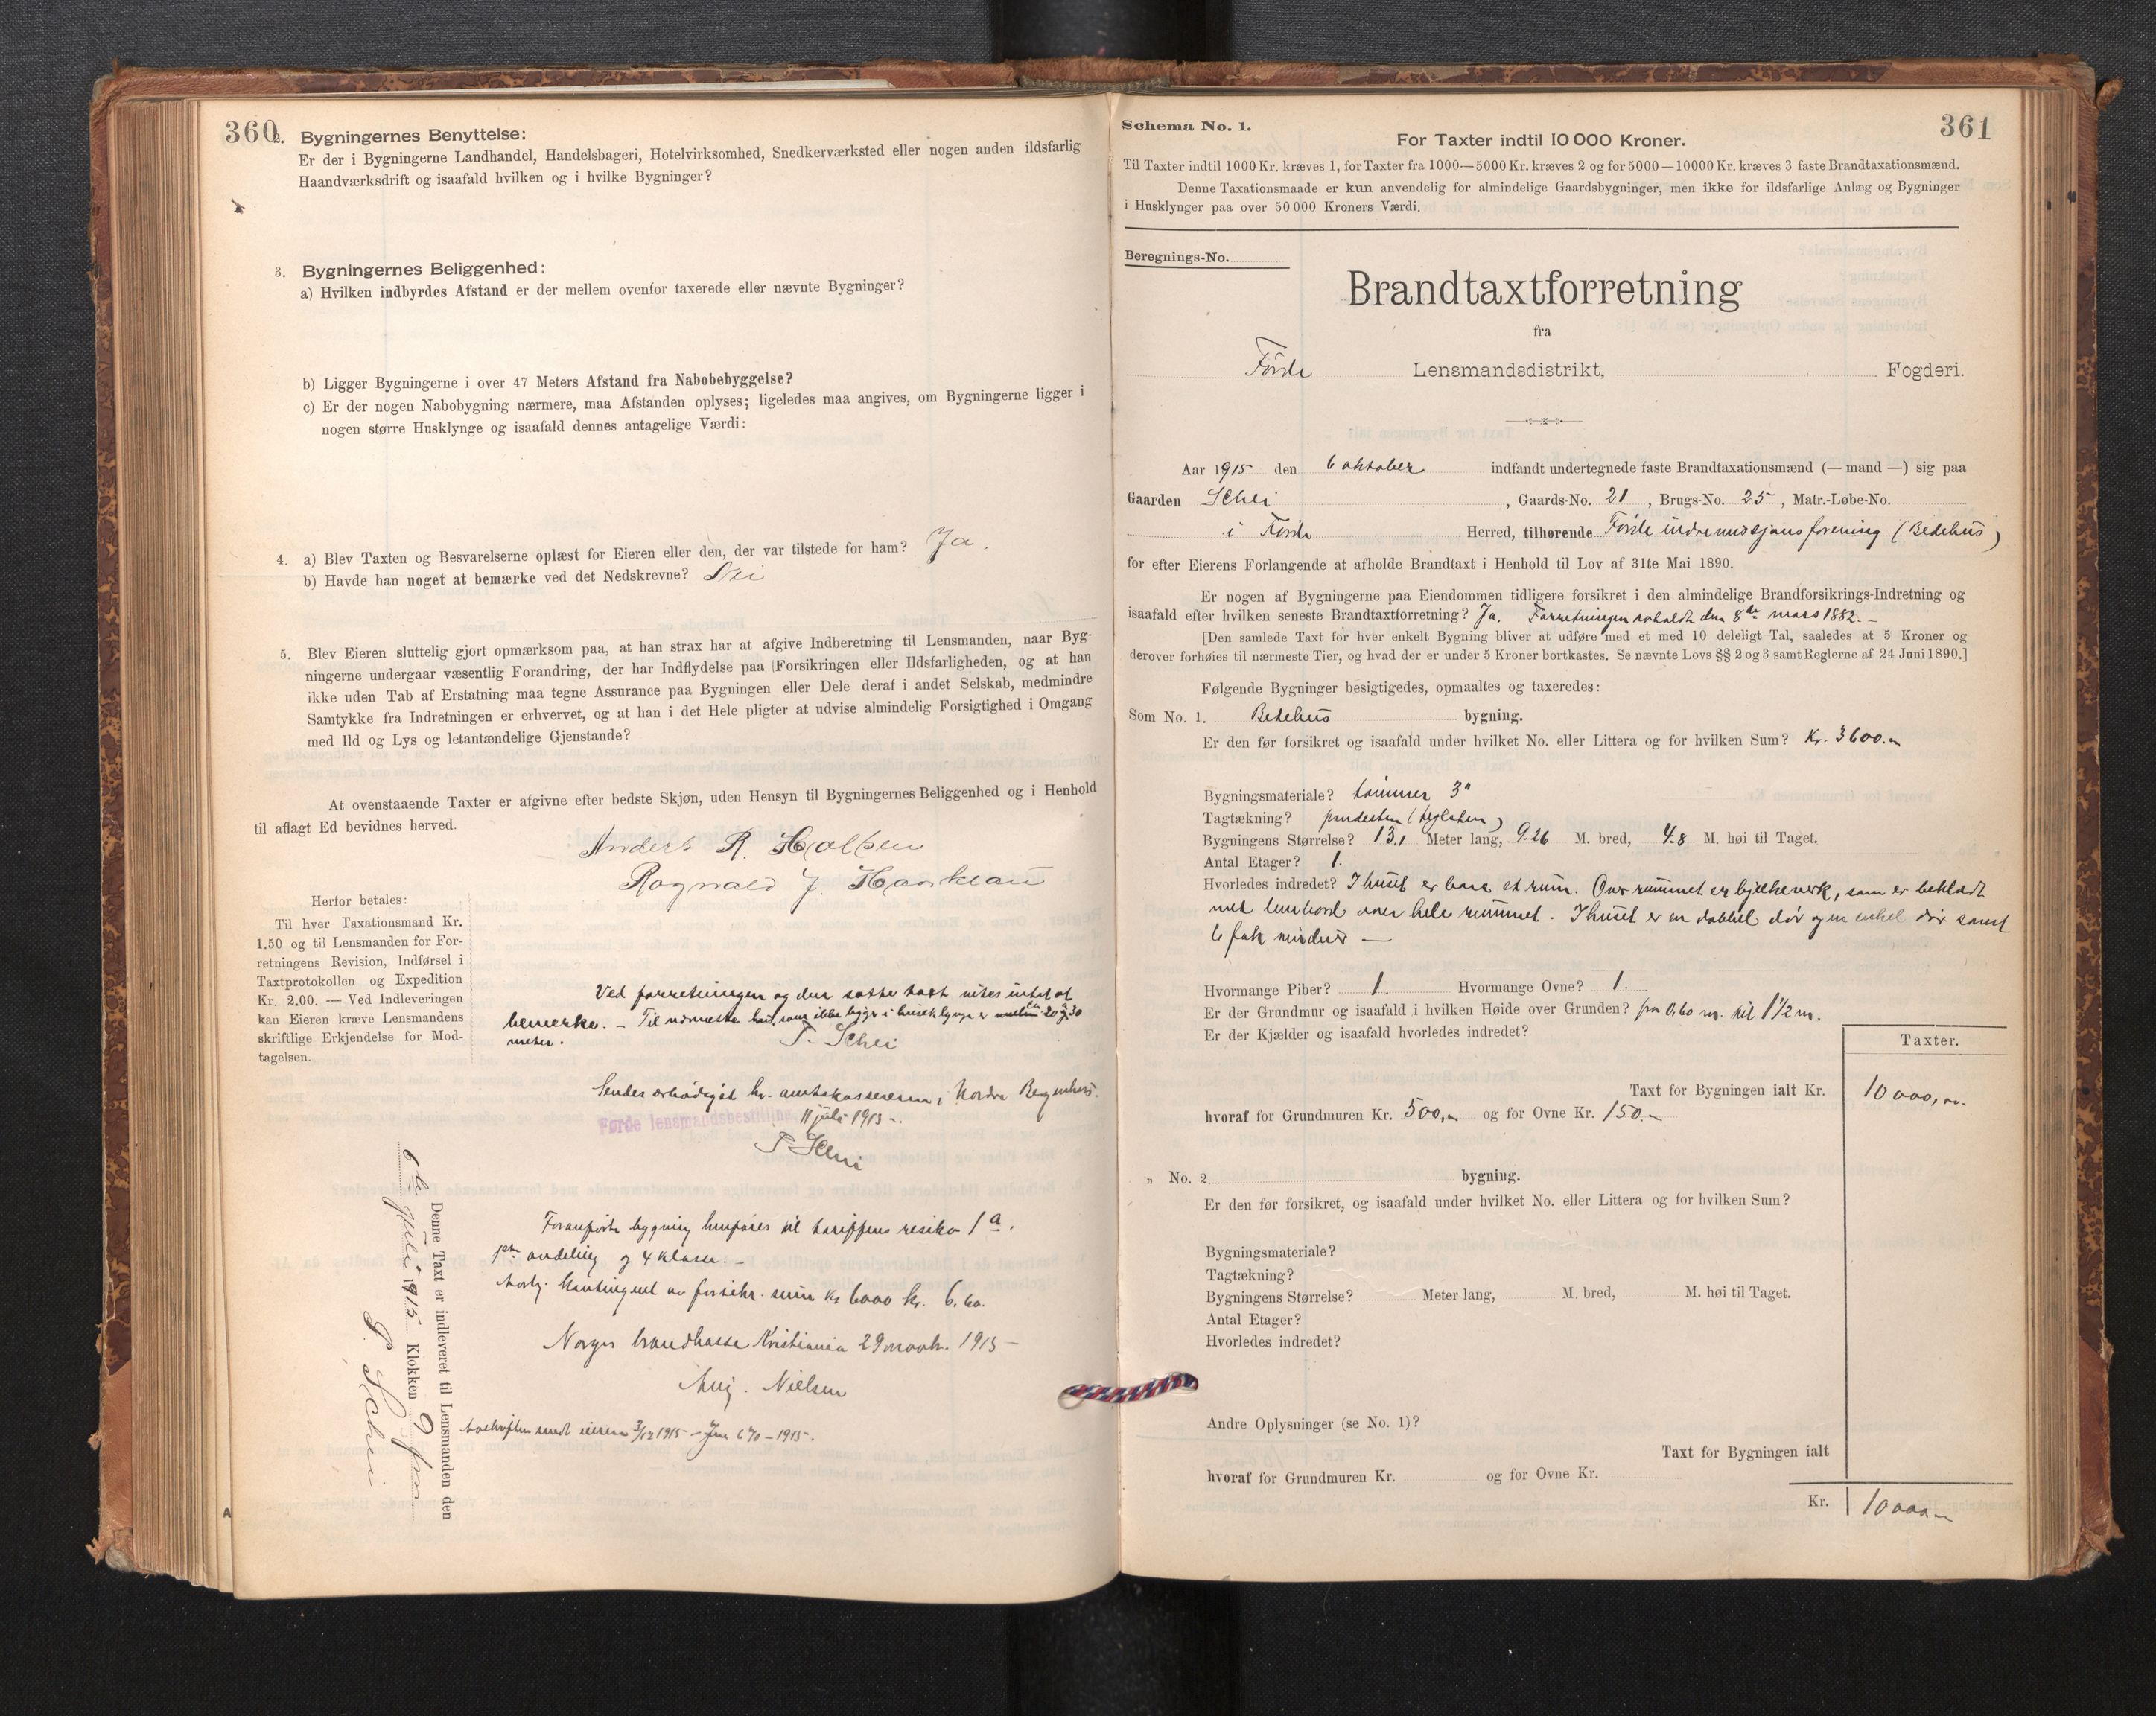 360
2. Bygningernes Benyttelse:
Er der i Bygningerne Landhandel, Handelsbageri, Hotelvirksomhed, Snedkerværksted eller nogen anden ildsfarlig
Haandværksdrift og isaafald hvilken og i hvilke Bygninger?
3. Bygningernes Beliggenhed:
a) Hvilken indbyrdes Afstand er der mellem ovenfor taxerede eller nævnte Bygninger?
b) Ligger Bygningerne i over 47 Meters Afstand fra Nabobebyggelse?
c) Er der nogen Nabobygning nærmere, maa Afstanden oplyses; ligeledes maa angives, om Bygningerne ligger i
nogen større Husklynge og isaafald dennes antagelige Værdi:
4. a) Blev Taxten og Besvarelserne oplæst for Eieren eller den, der var tilstede for ham? Ja.
b) Havde han noget at bemærke ved det Nedskrevne? Nei
5. Blev Eieren sluttelig gjort opmærksom paa, at han strax har at afgive Indberetning til Lensmanden, naar Byg-
ningerne undergaar væsentlig Forandring, der har Indflydelse paa Forsikringen eller Ildsfarligheden, og at han
ikke uden Tab af Erstatning maa tegne Assurance paa Bygningen eller Dele deraf i andet Selskab, medmindre
Samtykke fra Indretningen er erhvervet, og at han i det Hele pligter at udvise almindelig Forsigtighed i Omgang
med Ild og Lys og letantændelige Gjenstande?
At ovenstaaende Taxter er afgivne efter bedste Skjøn, uden Hensyn til Bygningernes Beliggenhed og i Henhold
til aflagt Ed bevidnes herved.
Anders R. Halsen
Ragnald J.
Herfor betales:
Til hver Taxationsmand Kr.
1.50 og til Lensmanden for For-
retningens Revision, Indførsel i
Taxtprotokollen og Expedition
Kr. 2.00. — Ved Indleveringen
kan Eieren kræve Lensmandens
skriftlige Erkjendelse for Mod-
tagelsen.
Ved forretningen og den satte taxt vites intet at
bemerke. – Til nærmeste hus, som ikke ligger i husklynge er mellem 20 og 30
meter.
T. Schei
Sendes ærbødigst hr. amtskassereren i Nordre Bergenhus.
Førde lensmandsbestilling 11 juli 1915 –
T Schei
Foranførte bygning henføres til tariffens resiko 1 a.
1ste avdeling og 4 klasse. –
Aarlig kontingent av forsikr. sum kr 6000 kr. 6.60.
Norges brandkasse Kristiania 29 novbr. 1915 –
Aug. Nielsen
Avskriften sendt eieren 3/12 1915 – Jnr 670 – 1915.
Denne Taxt er indleveret til Lensmanden den
6 te juli 1915 Klokken 9 fm
T. Schei
361
Schema No. 1.
For Taxter indtil 10 000 Kroner.
Til Taxter indtil 1000 Kr. kræves 1, for Taxter fra 1000—5000 Kr. kræves 2 og for 5000—10000 Kr. kræves 3 faste Brandtaxationsmænd.
Denne Taxationsmaade er kun anvendelig for almindelige Gaardsbygninger, men ikke for ildsfarlige Anlæg og Bygninger
i Husklynger paa over 50 000 Kroners Værdi.
Beregnings-No.
Brandtaxtforretning
fra
Førde Lensmandsdistrikt, Fogderi.
Aar 1915 den 6 oktober indfandt undertegnede faste Brandtaxationsmænd (— mand —) sig paa
Gaarden Schei, Gaards-No. 21, Brugs-No. 25, Matr.-Løbe-No.
i Førde Herred, tilhørende Førde indremissjonsforening (Bedehus)
for efter Eierens Forlangende at afholde Brandtaxt i Henhold til Lov af 31te Mai 1890.
Er nogen af Bygningerne paa Eiendommen tidligere forsikret i den almindelige Brandforsikrings-Indretning og
isaafald efter hvilken seneste Brandtaxtforretning? Ja. Forretningen avholdt den 8de mars 1882. –
[Den samlede Taxt for hver enkelt Bygning bliver at udføre med et med 10 deleligt Tal, saaledes at 5 Kroner og
derover forhøies til nærmeste Tier, og hvad der er under 5 Kroner bortkastes. Se nævnte Lovs §§ 2 og 3 samt Reglerne af 24 Juni 1890.]
Følgende Bygninger besigtigedes, opmaaltes og taxeredes:
Som No. 1. Bedehus bygning.
Er den før forsikret og isaafald under hvilket No. eller Littera og for hvilken Sum? Kr. 3600.–
Bygningsmateriale? tømmer 3"
Tagtækning? (teglsten)
Bygningens Størrelse? 13,1 Meter lang, 9.26 M. bred, 4.8 M. høi til Taget.
Antal Etager? 1.
Hvorledes indredet? I huset er bare et rum. Over rummet er bjelkeverk, som er beklædt
med lembord over hele rummet. I huset er en dobbel dør og en enkel dør samt
6 fak vinduer —
Hvormange Piber? 1. Hvormange Ovne? 1.
Er der Grundmur og isaafald i hvilken Høide over Grunden? fra 0,60 m. til 1 1/2 m.
Er der Kjælder og isaafald hvorledes indredet?
Taxter.
Taxt for Bygningen ialt Kr. 10 000,
hvoraf for Grundmuren Kr. 500,– og for Ovne Kr. 150.–
„ No. 2 bygning.
Er den før forsikret, og isaafald under hvilket No. eller Littera og for hvilken Sum?
Bygningsmateriale?
Tagtækning?
Bygningens Størrelse? Meter lang, M. bred, M. høi til Taget.
Antal Etager?
Hvorledes indredet?
Andre Oplysninger (se No. 1)?
Taxt for Bygningen ialt
hvoraf for Grundmuren Kr. og for Ovne Kr.
Kr. 10 000.–